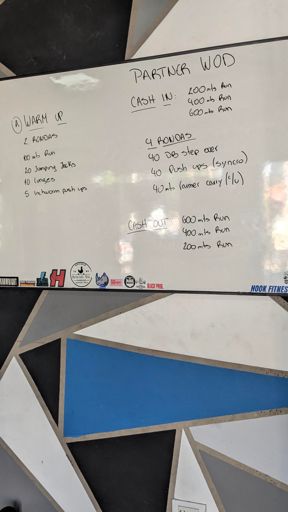 PARTNER WOD
A WARM UP
2 RONDAS
20 Jumping Jacks
10 Lunges
5 Inchworm push ups
CASH IN: 200 mts Run
400 mts Run
600 mts Run
4 RONDAS
40 DB step over
40 Push ups (syncro)
40 mts Farmer carry (c/u)
CASH OUT 600 mts Run
400 mts Run
200 mts Run
BLACK PROJ.
HOOK FITNES